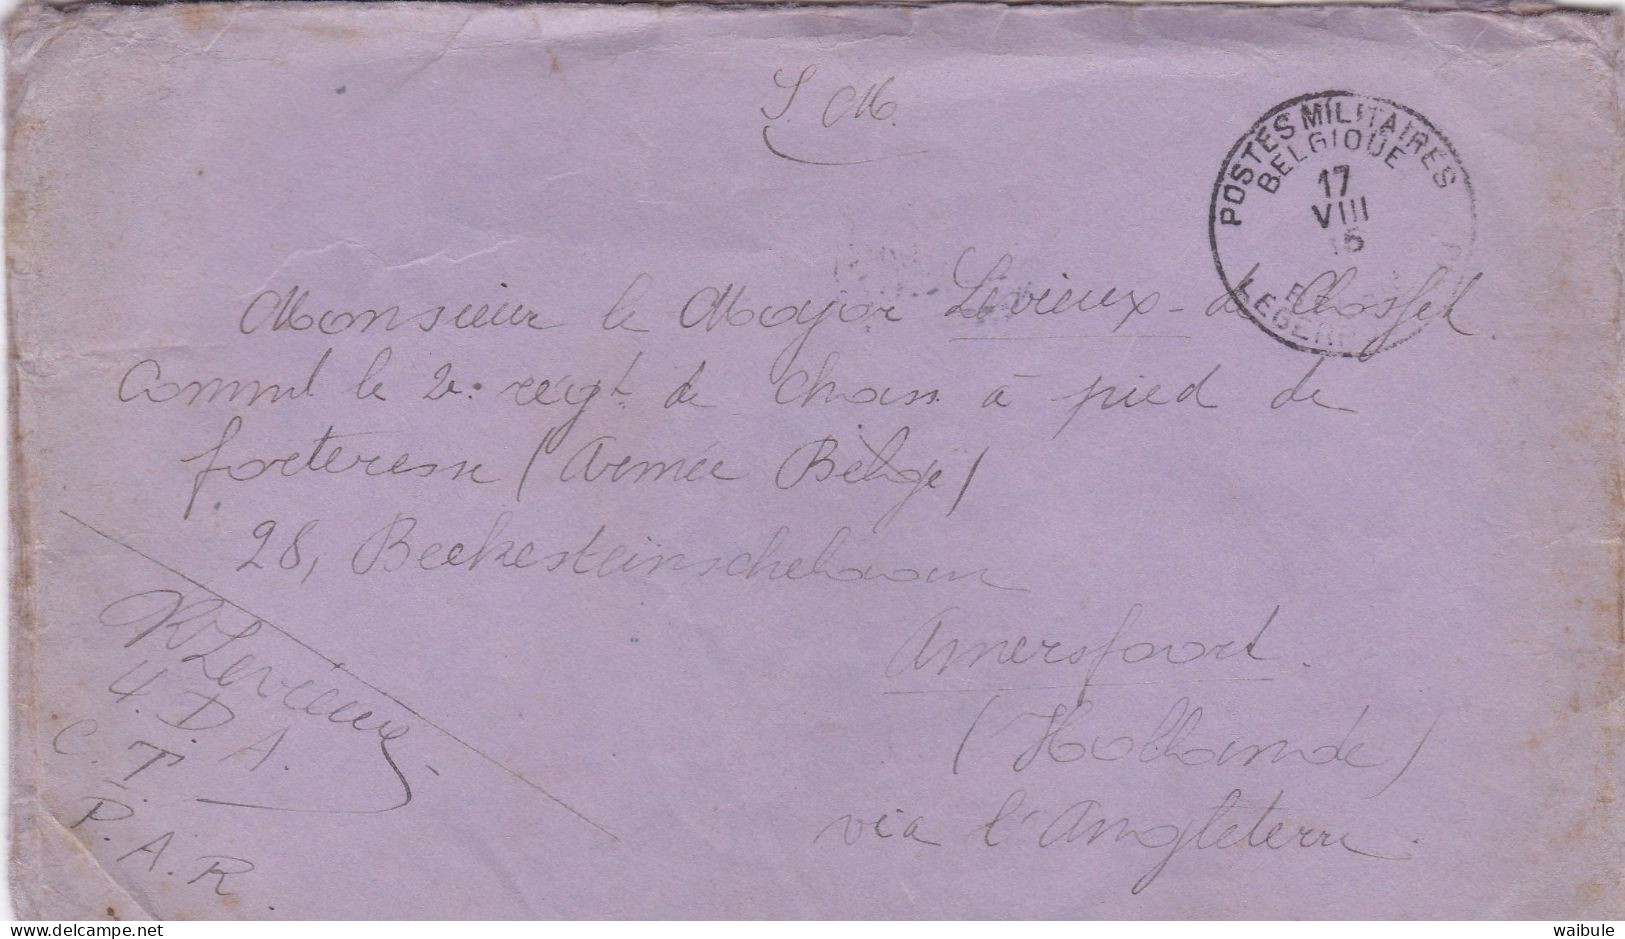 S. M.
POSTES MILITAIRES
BELGIQUE
17
VIII
15
LEGERP
Monsieur le Major Levieux - de Mosfel
Commd le 2e. regt. de chass. à pied de
forteresse (Armée Belge)
28, Beekesteinschelaan
Amersfoort.
(Hollande)
via l'Angleterre.
Levieux
4. D. A.
C. T.
P. A. R
waibule